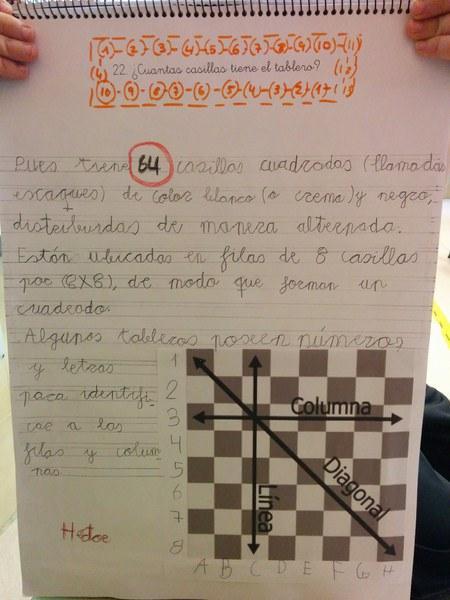 (1)-(2)-(3)-(4)-(5)-(6)-(7)-(8)-(9)-(10)-(11)
22. ¿Cuantas casillas tiene el tablero?
(10)-(9)-(8)-(7)-(6)-(5)-(4)-(3)-(2)-(1)-
Pues tiene 64 casillas cuadradas (llamadas
escaques) de color blanco (o crema) y negro,
distribuidas de manera alternada.
Están ubicadas en filas de 8 casillas
por (8X8), de modo que forman un
cuadrado.
Algunos tableros poseen números
y letras
para identifi-
car a las
filas y colum
nas
Hector
1
2
3
4
5
6
7
8
Columna
Diagonal
Línea
A B C D E F G H